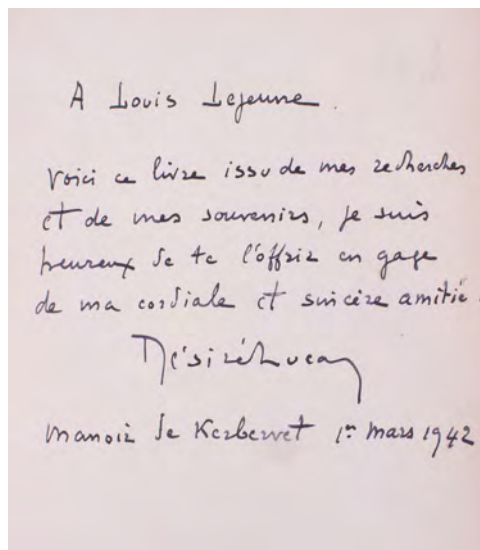 A Louis Lejeune.
Voici ce livre issu de mes recherches
et de mes souvenirs, je suis
heureux de te l'offrir en gage
de ma cordiale et sincère amitié.
Désiré Lucas
Manoir de Kerbervet 1er mars 1942